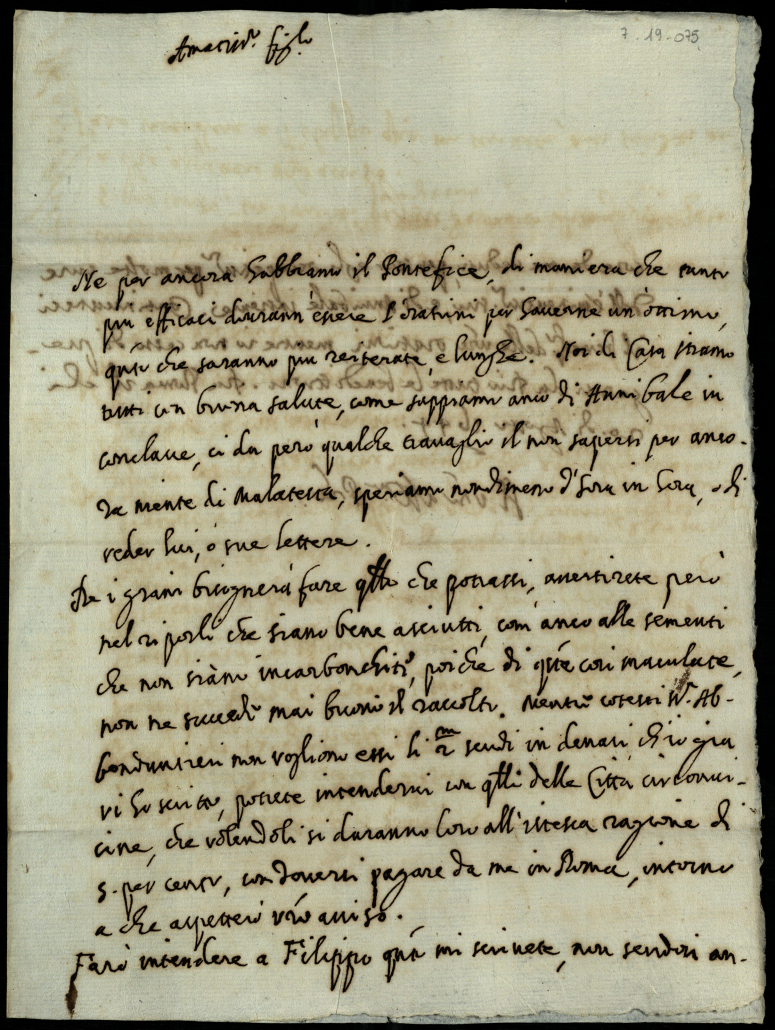 7-19-075
Amatiss.º figlo
Ne per ancora habbiamo il Pontefice, di maniera che tanto
piu efficaci dourann'essere l'orationi per hauerne un'ottimo,
qnto che saranno piu reiterate, e lunghe. Noi di Casa stiamo
tutti con buona salute, come sappiamo anco di Annibale in
conclaue, ci da però qualche trauaglio il non sapersi per anco-
ra niente di Malatesta, speriamo nondimeno d'hora in hora, o di
veder lui, o sue lettere.
De i grani bisognerà fare qllo che potrassi, auertirete però
nel riporli che siano bene asciutti, com'anco alle sementi
che non siano incarbonchiti, poiche di qste cosi maculate,
non ne succede mai buoni raccolti. Mentre cotesti SS.ri Ab-
bondantieri non vogliono essi li 2m scudi in denari ch'io gia
vi ho scritto, potrete intendervi con qlli delle Città circonui-
cine, che volendoli si daranno loro all'istessa ragione di
5. per cento, con douersi pagare da me in Roma, intorno
a che aspetterò vro auiso.
Farò intendere a Filippo qnto mi scriuete, non sendosi an-